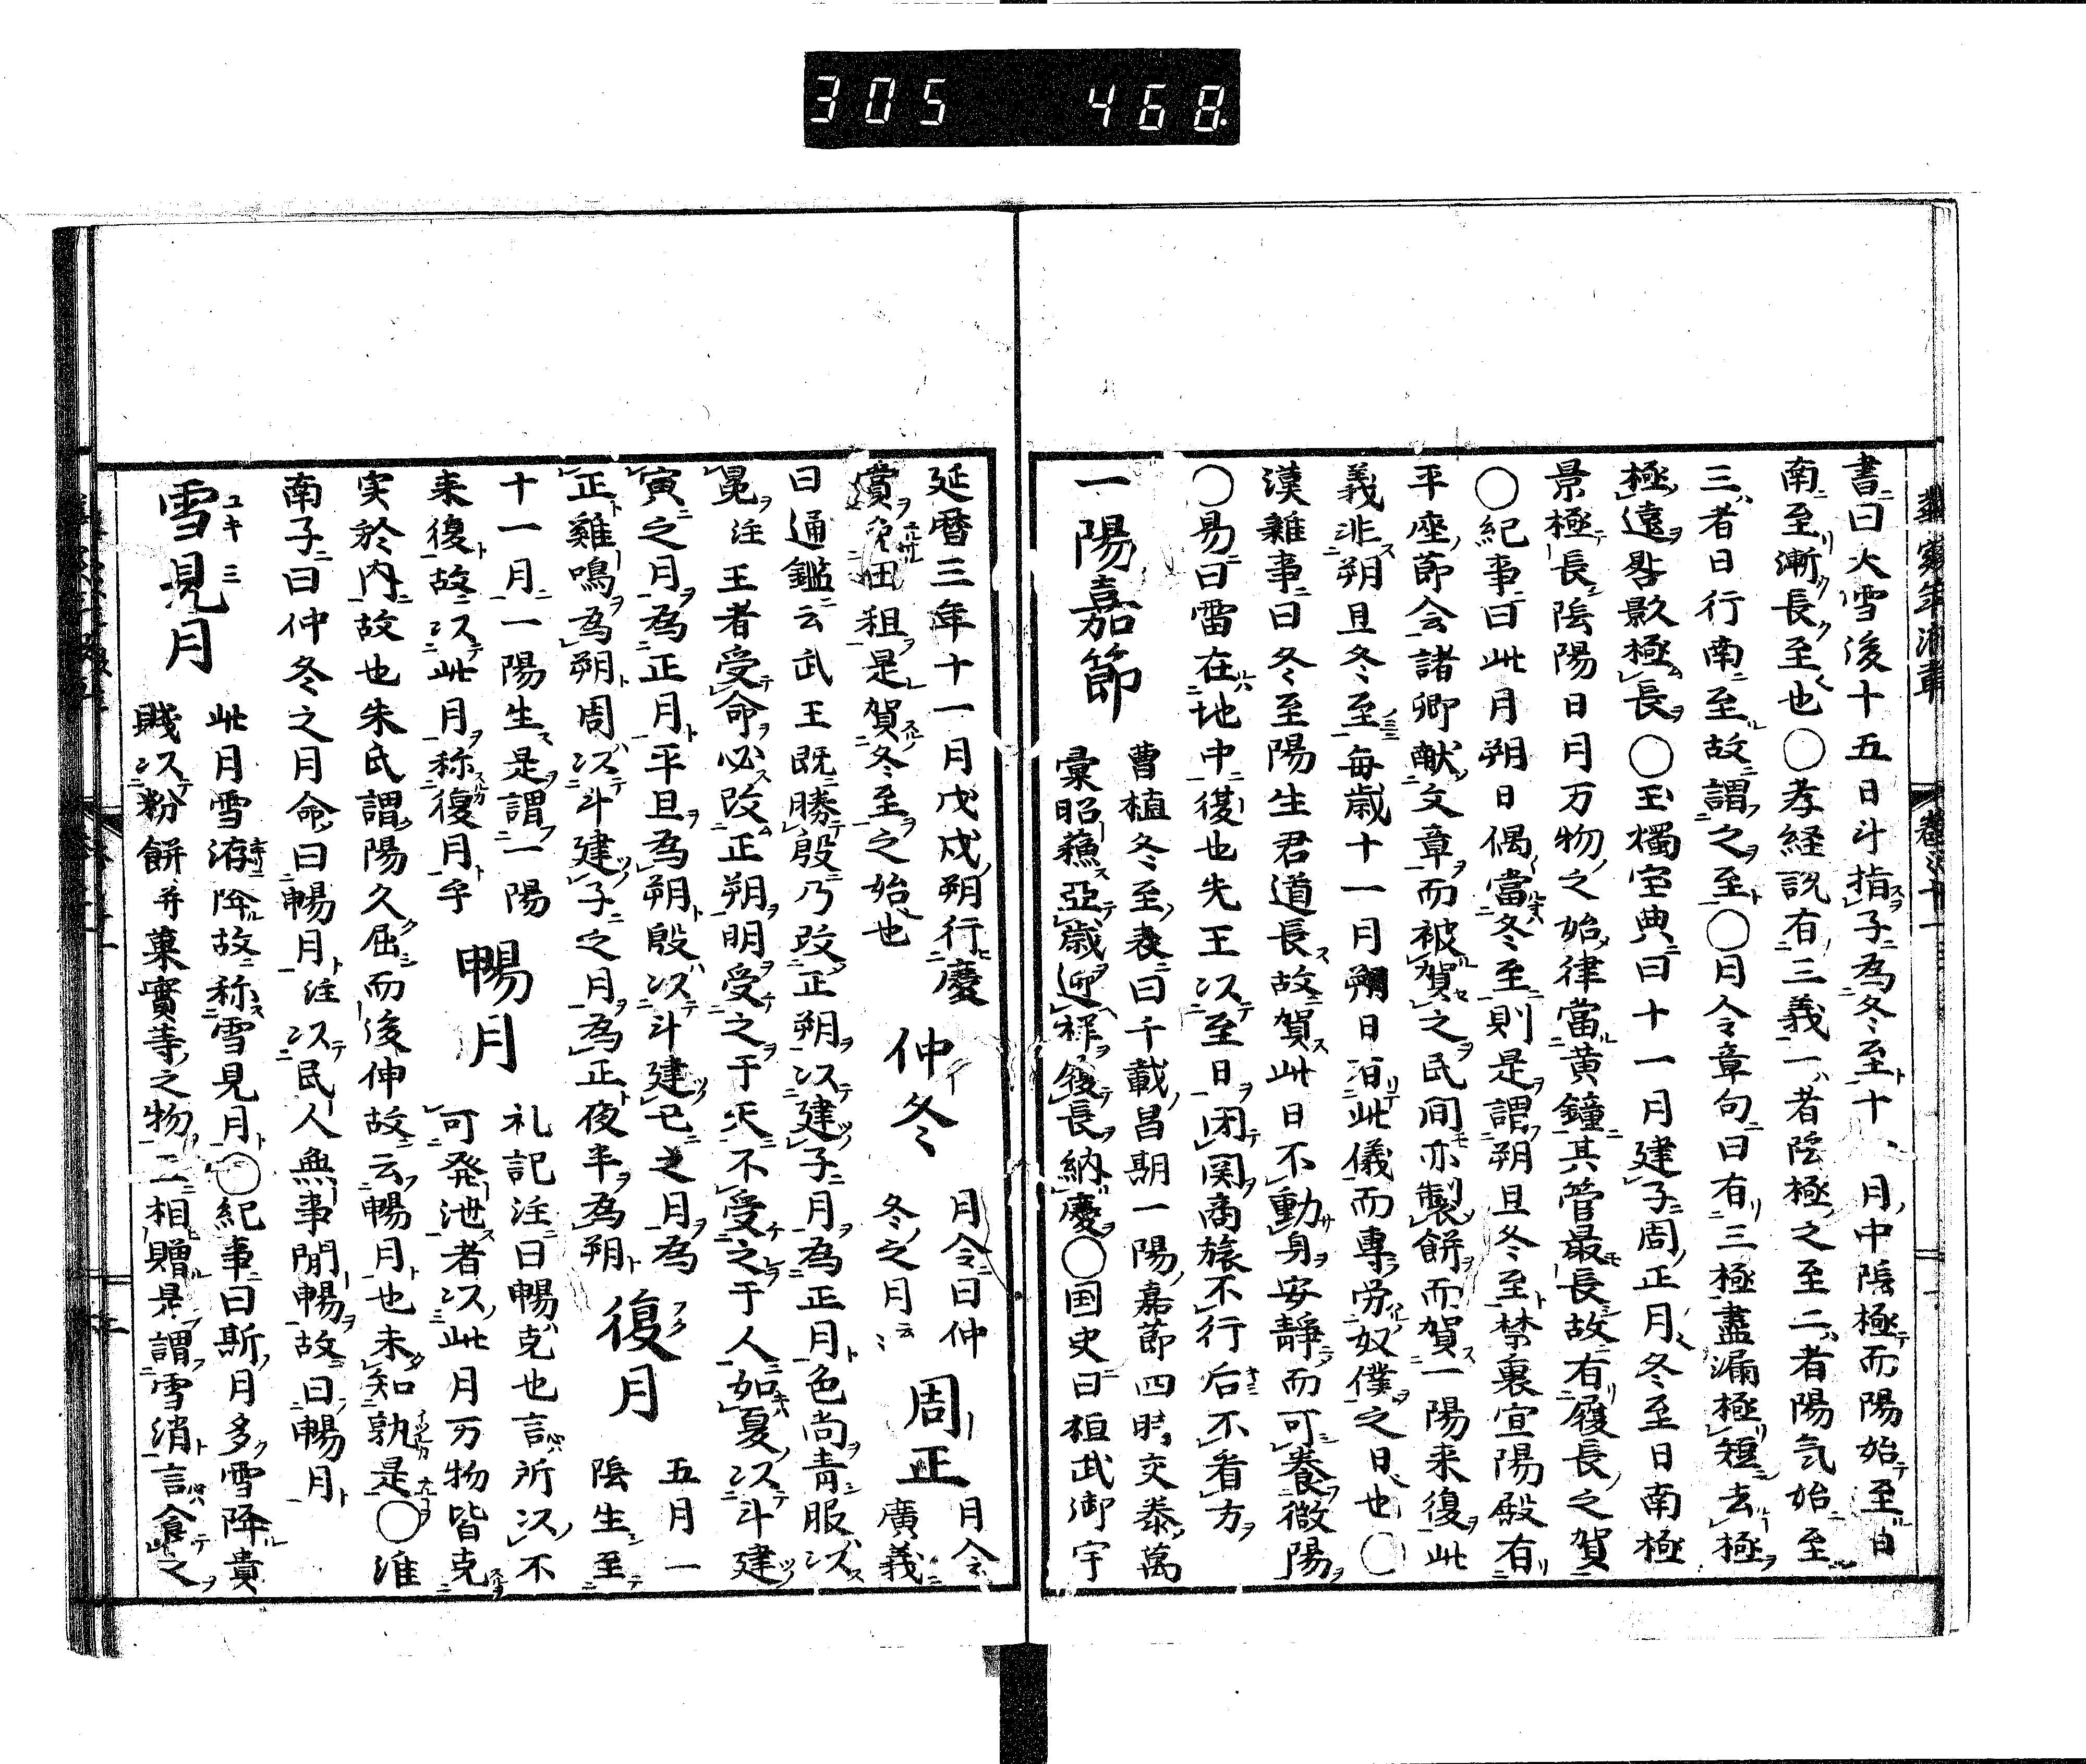 305 468
書曰大雪後十五日斗指子為冬至十 月中陰極而陽始至日
南至漸長至也○孝経説有三義一者陰極之至二者陽気始至
三者日行南至故謂之至○月令章句曰有三極晝漏極短去極
極遠晷影極長○玉燭宝典曰十一月建子周正月冬至日南極
景極長陰陽日月万物之始律當黄鐘其管最長故有履長之賀
○紀事曰此月朔日偶當冬至則是謂朔旦冬至禁裏宣陽殿有
平座節会諸卿献文章而被賀之民間亦製餅而賀一陽来復此
義非朔旦冬至毎歳十一月朔日有此儀而專労奴僕之日也○
漢雜事曰冬至陽生君道長故賀此日不動身安静而可養微陽
○易曰雷在地中復也先王以至日閉関商旅不行后不省方
一陽嘉節
曹植冬至表曰千載昌期一陽嘉節四時交泰萬
彙昭蘓亞歳迎祥履長納慶○国史曰桓武御宇
延暦三年十一月戊戌朔行慶
賞免田租是賀冬至之始也
仲冬
月令曰仲
冬之月云〻
周正
月令
廣義
曰通鑑云武王既勝殷乃改正朔以建子月為正月色尚青服以
冕注王者受命必改正朔明受之于天不受之于人如夏以斗建
寅之月為正月平旦為朔殷以斗建巳之月為
正雞鳴為朔周以斗建子之月為正夜半為朔
復月
五月一
陰生至
十一月一陽生是謂一陽
来復故以此月称復月乎
暢月
礼記注曰暢充也言所以不
可発泄者以此月万物皆充
実於内故也朱氏謂陽久屈而後伸故云暢月也未知孰是○淮
南子曰仲冬之月命曰暢月注以民人無事閒暢故曰暢月
雪見月
此月雪済降故称雪見月○紀事曰斯月多雪降貴
賤以粉餅并菓實等之物二相贈是謂雪消言食之